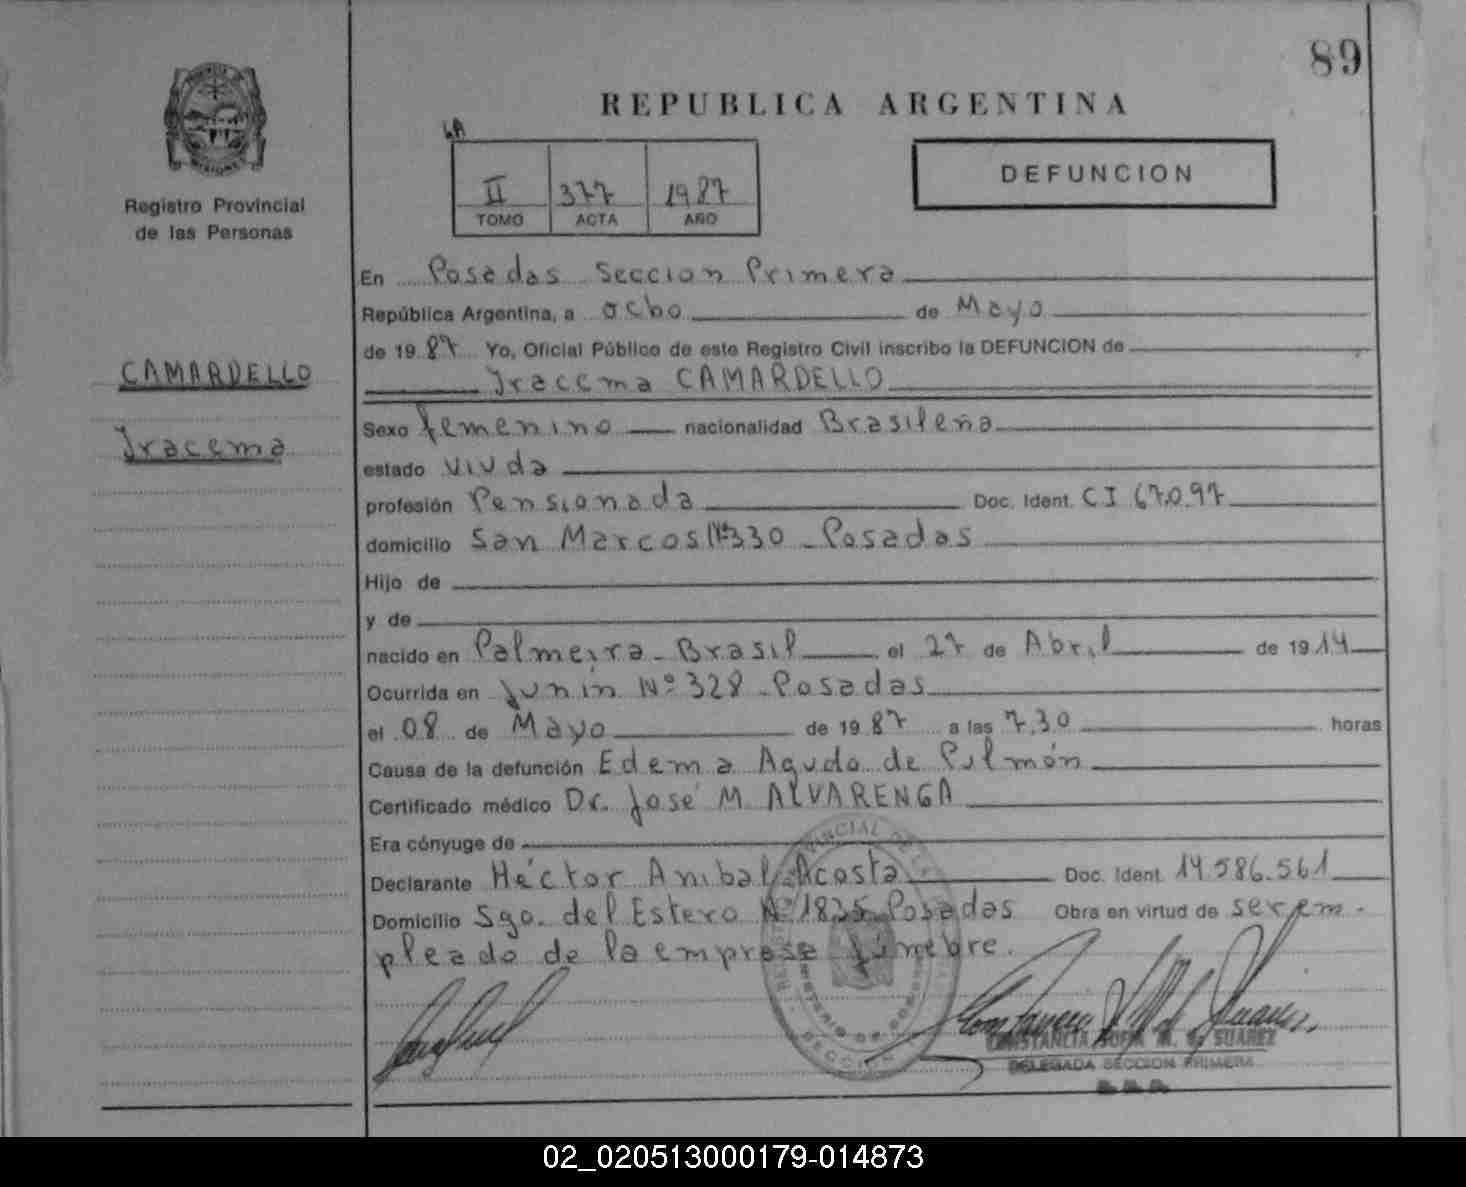 89
REPUBLICA ARGENTINA
LA
II 377 1987
TOMO ACTA AÑO
DEFUNCION
Registro Provincial
de las Personas
CAMARDELLO
Iracema
En Posadas Seccion Primera
República Argentina, a ocho de Mayo
de 1987 Yo, Oficial Público de este Registro Civil inscribo la DEFUNCION de
Iracema CAMARDELLO
Sexo femenino nacionalidad Brasileña
estado viuda
profesión Pensionada Doc. Ident. CI 67.097
domicilio San Marcos Nº330 - Posadas
Hijo de
y de
nacido en Palmeira - Brasil el 27 de Abril de 1914
Ocurrida en Junín Nº 328 - Posadas
el 08 de Mayo de 1987 a las 7,30 horas
Causa de la defunción Edema Agudo de Pulmón
Certificado médico Dr. José M ALVARENGA
Era cónyuge de
Declarante Héctor Anibal Acosta Doc. Ident. 14.586.561
Domicilio Sgo. del Estero Nº 1835 Posadas Obra en virtud de ser em-
pleado de la empresa fúnebre.
CONSTANCIA SUAREZ
DELEGADA SECCION PRIMERA
02_020513000179-014873